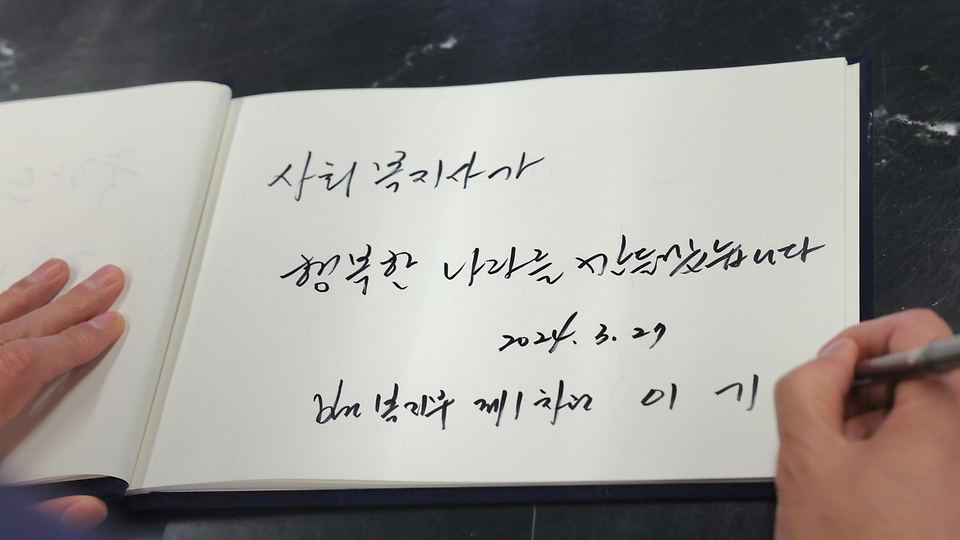 사회복지사가
행복한 나라를 만들겠습니다
2024. 3. 29
보건복지부 제1차관 이 기